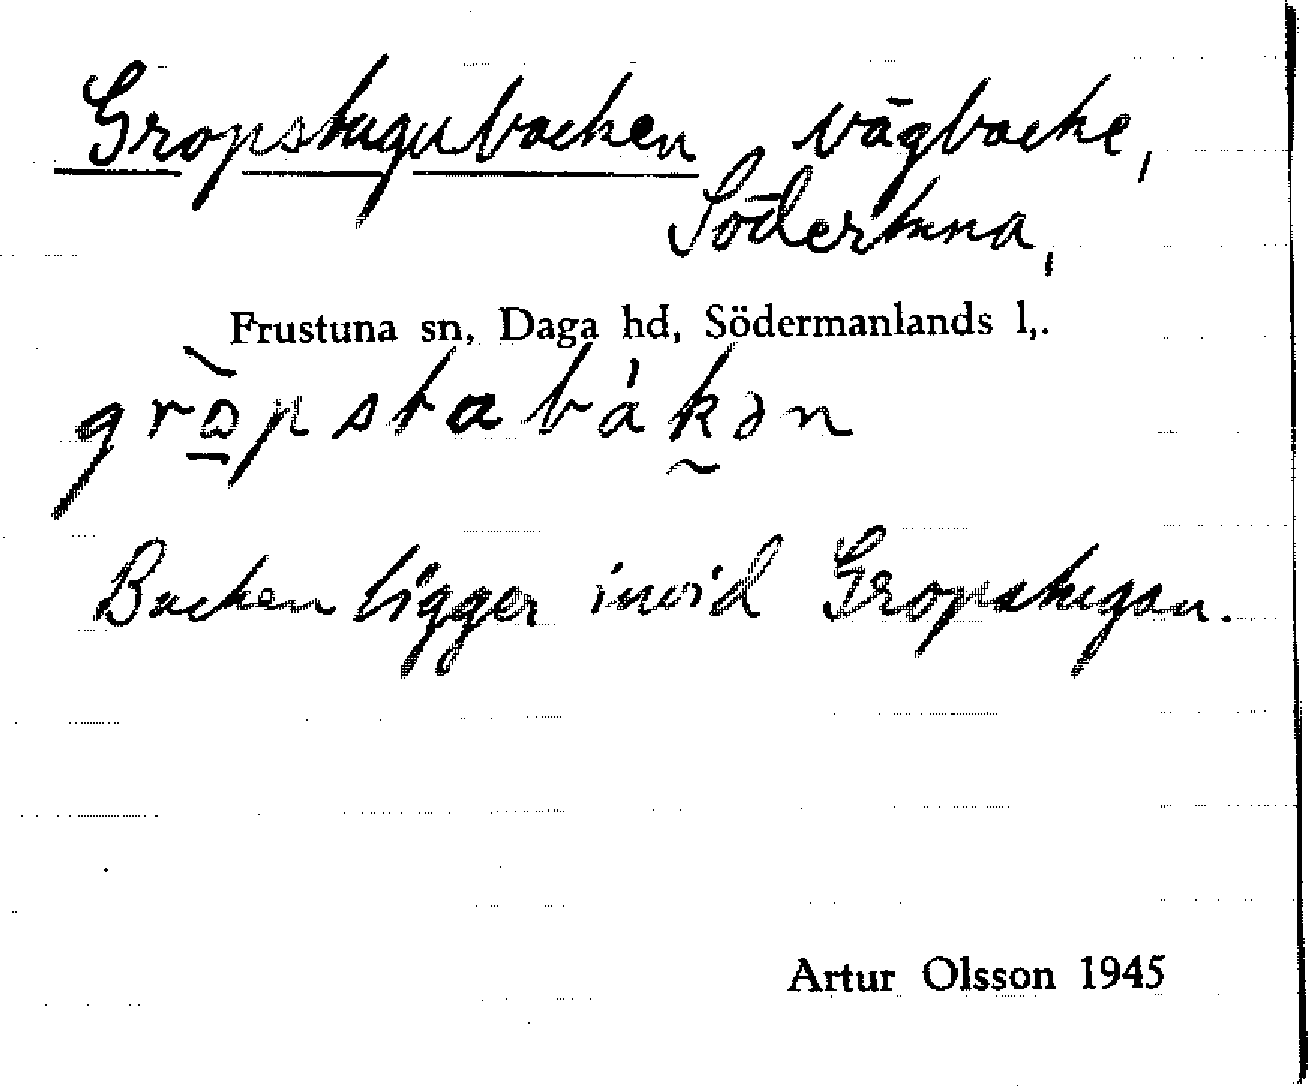 Gropstugubacken vägbacke,
Södertuna,
Frustuna sn, Daga hd, Södermanlands l,.
Backen ligger invid Gropstugan.
Artur Olsson 1945